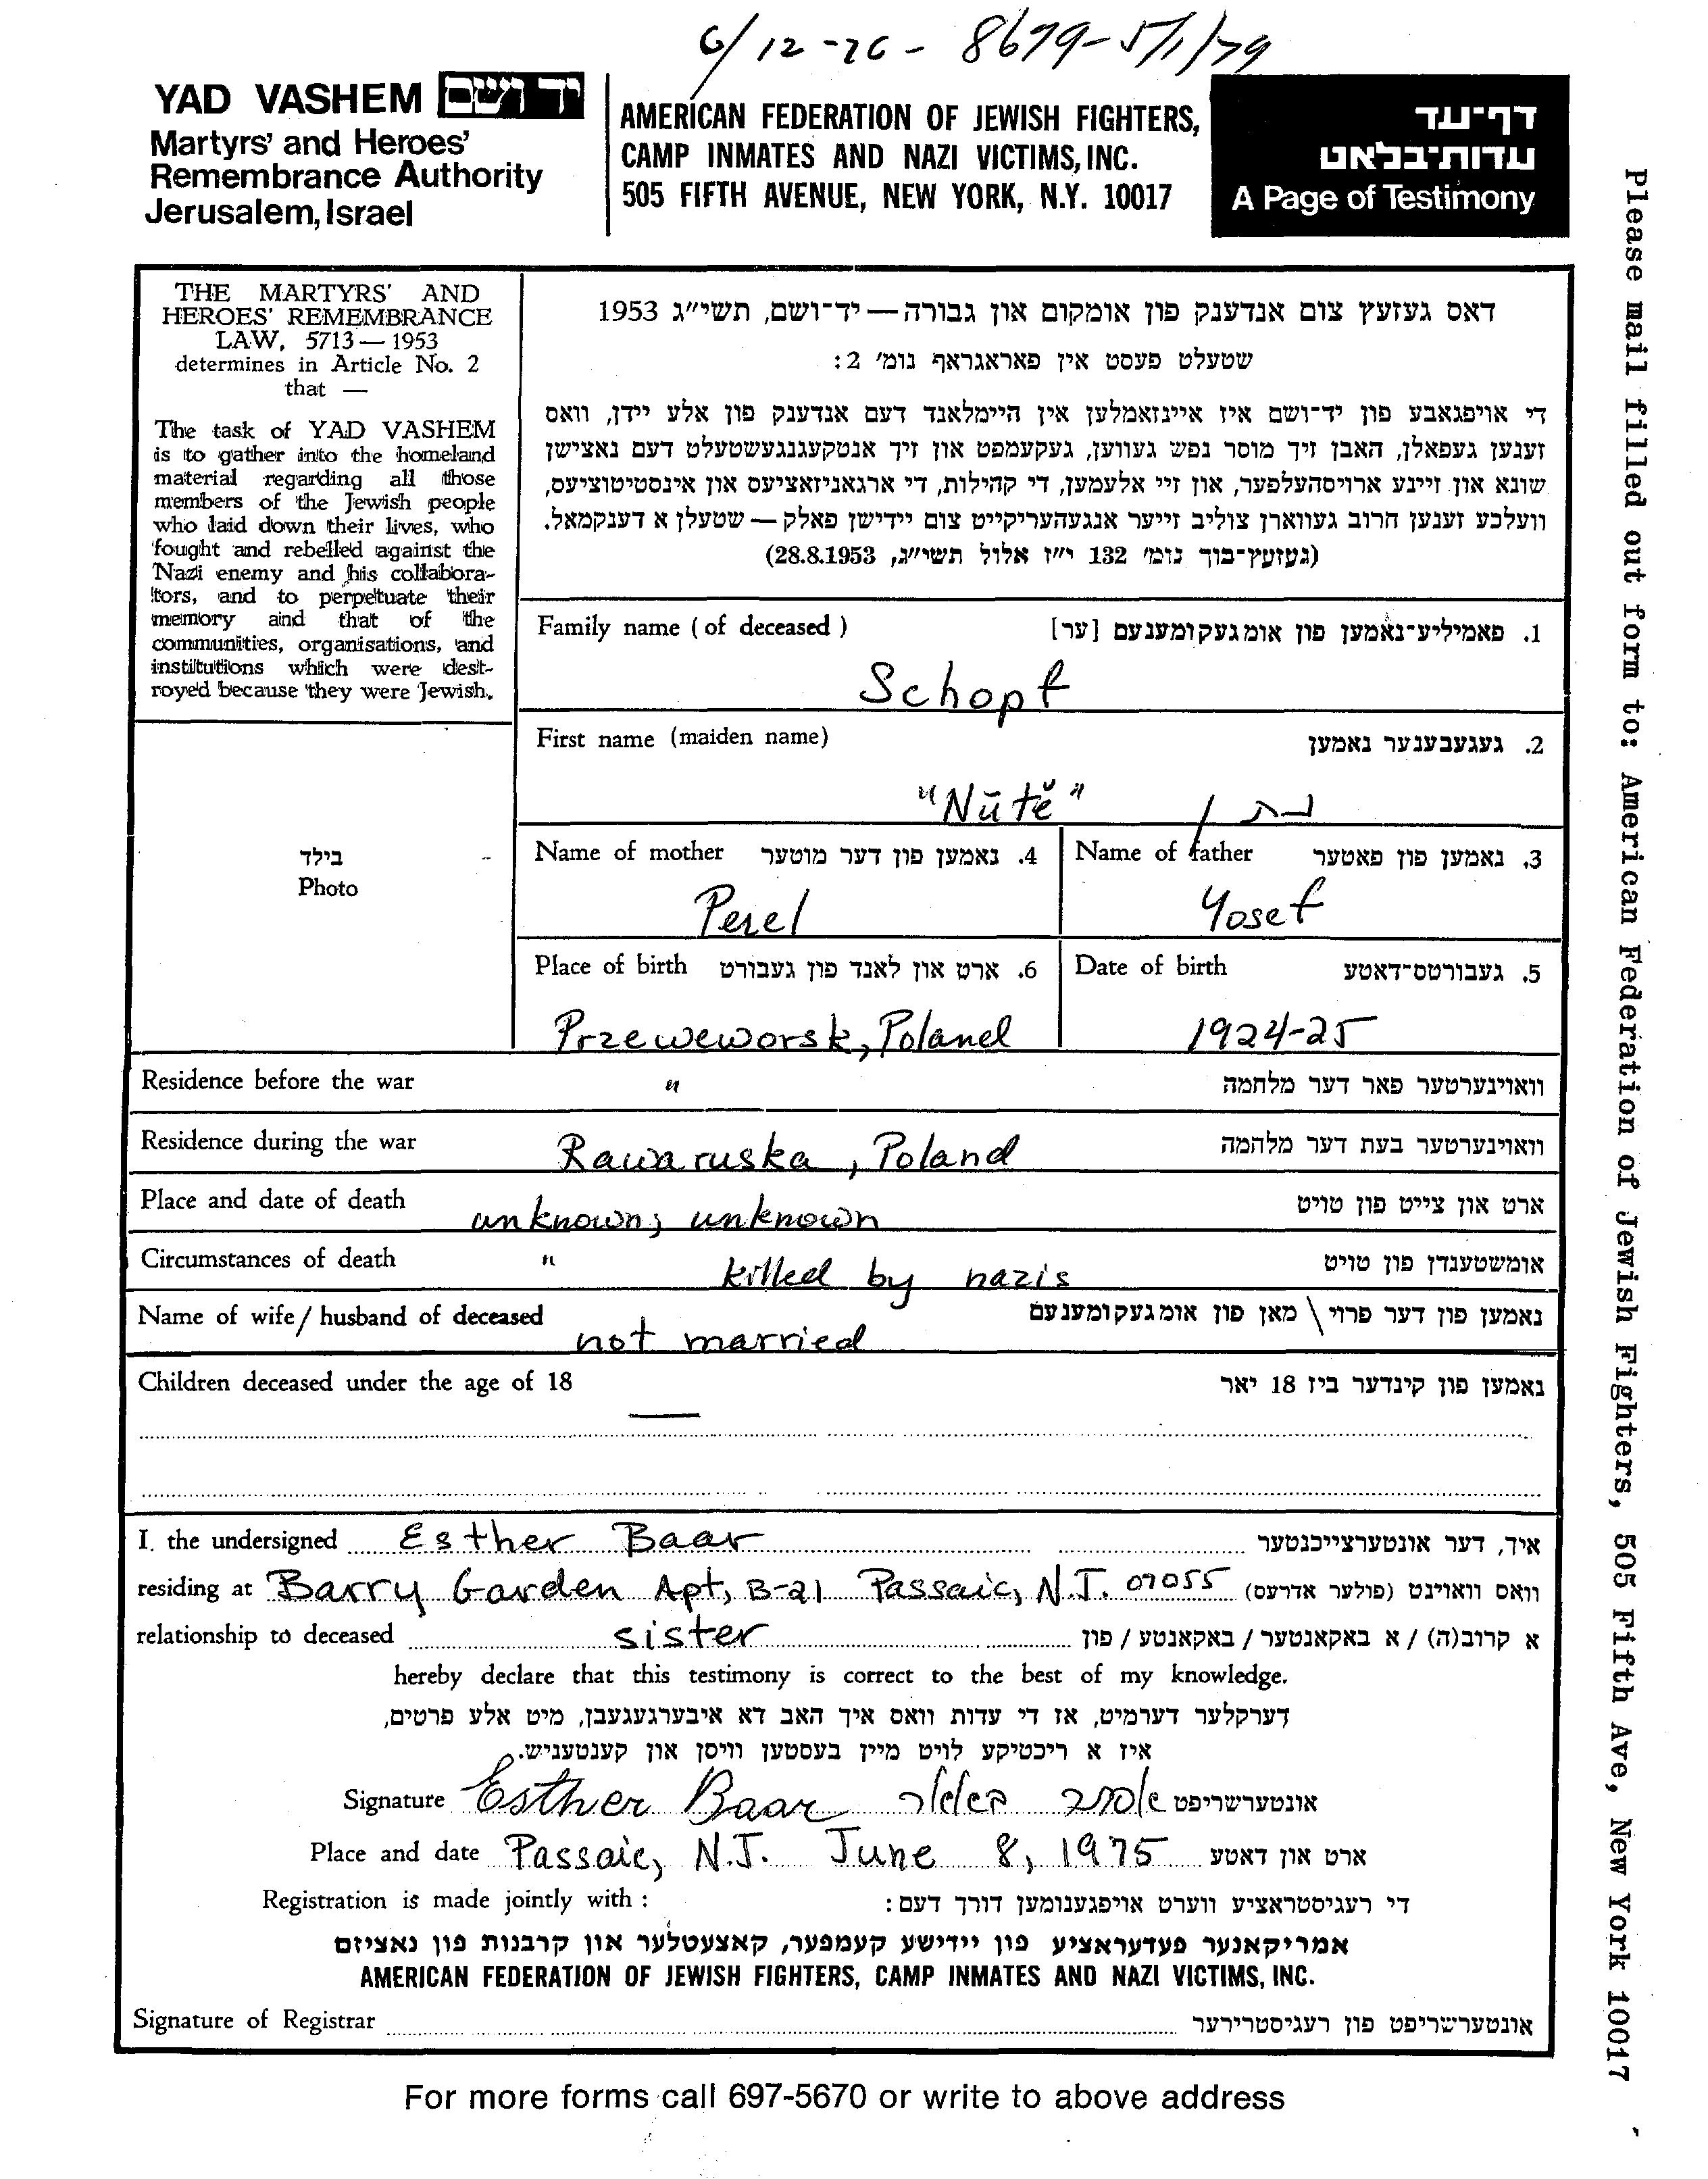 6/12-76 - 8679-5/1/79
YAD VASHEM יד ושם
Martyrs' and Heroes'
Remembrance Authority
Jerusalem, Israel
AMERICAN FEDERATION OF JEWISH FIGHTERS,
CAMP INMATES AND NAZI VICTIMS, INC.
505 FIFTH AVENUE, NEW YORK, N.Y. 10017
דף-עד
עדות-בלאט
A Page of Testimony
Please mail filled out form to: American Federation of Jewish Fighters, 505 Fifth Ave, New York 10017
THE MARTYRS' AND
HEROES' REMEMBRANCE
LAW, 5713 — 1953
determines in Article No. 2
that —
The task of YAD VASHEM
is to gather into the homeland
material regarding all those
members of the Jewish people
who laid down their lives, who
fought and rebelled against the
Nazi enemy and his collabora-
tors, and to perpetuate their
memory and that of the
communities, organisations, and
institutions which were dest-
royed because they were Jewish.
דאס געזעץ צום אנדענק פון אומקום און גבורה — יד-ושם, תשי״ג 1953
שטעלט פעסט אין פאראגראף נומ׳ 2:
די אויפגאבע פון יד-ושם איז איינזאמלען אין היימלאנד דעם אנדענק פון אלע יידן, וואס
זענען געפאלן, האבן זיך מוסר נפש געווען, געקעמפט און זיך אנטקעגנגעשטעלט דעם נאצישן
שונא און זיינע ארויסהעלפער, און זיי אלעמען, די קהילות, די ארגאניזאציעס און אינסטיטוציעס,
וועלכע זענען חרוב געווארן צוליב זייער אנגעהעריקייט צום יידישן פאלק — שטעלן א דענקמאל.
(געזעץ-בוך נומ׳ 132 י״ז אלול תשי״ג, 28.8.1953)
Family name (of deceased) 1. פאמיליע-נאמען פון אומגעקומענעם [ער]
Schopf
First name (maiden name) 2. געגעבענער נאמען
"Nūtĕ" / נתן
בילד
Photo
Name of mother 4. נאמען פון דער מוטער
Perel
Name of father 3. נאמען פון פאטער
Yosef
Place of birth 6. ארט און לאנד פון געבורט
Przeweworsk, Poland
Date of birth 5. געבורטס-דאטע
1924-25
Residence before the war " וואוינערטער פאר דער מלחמה
Residence during the war Rawa ruska, Poland וואוינערטער בעת דער מלחמה
Place and date of death unknown; unknown ארט און צייט פון טויט
Circumstances of death " killed by nazis אומשטענדן פון טויט
Name of wife / husband of deceased not married נאמען פון דער פרוי \ מאן פון אומגעקומענעם
Children deceased under the age of 18 — נאמען פון קינדער ביז 18 יאר
I. the undersigned Esther Baar איך, דער אונטערצייכנטער
residing at Barry Garden Apt, B-21 Passaic, N.J. 07055 וואס וואוינט (פולער אדרעס)
relationship to deceased sister א קרוב(ה) / א באקאנטער / באקאנטע / פון
hereby declare that this testimony is correct to the best of my knowledge.
דערקלער דערמיט, אז די עדות וואס איך האב דא איבערגעגעבן, מיט אלע פרטים,
איז א ריכטיקע לויט מיין בעסטען וויסן און קענטעניש.
Signature Esther Baar אונטערשריפט
Place and date Passaic, N.J. June 8, 1975 ארט און דאטע
Registration is made jointly with: די רעגיסטראציע ווערט אויפגענומען דורך דעם:
אמריקאנער פעדעראציע פון יידישע קעמפער, קאצעטלער און קרבנות פון נאציזם
AMERICAN FEDERATION OF JEWISH FIGHTERS, CAMP INMATES AND NAZI VICTIMS, INC.
Signature of Registrar אונטערשריפט פון רעגיסטרירער
For more forms call 697-5670 or write to above address